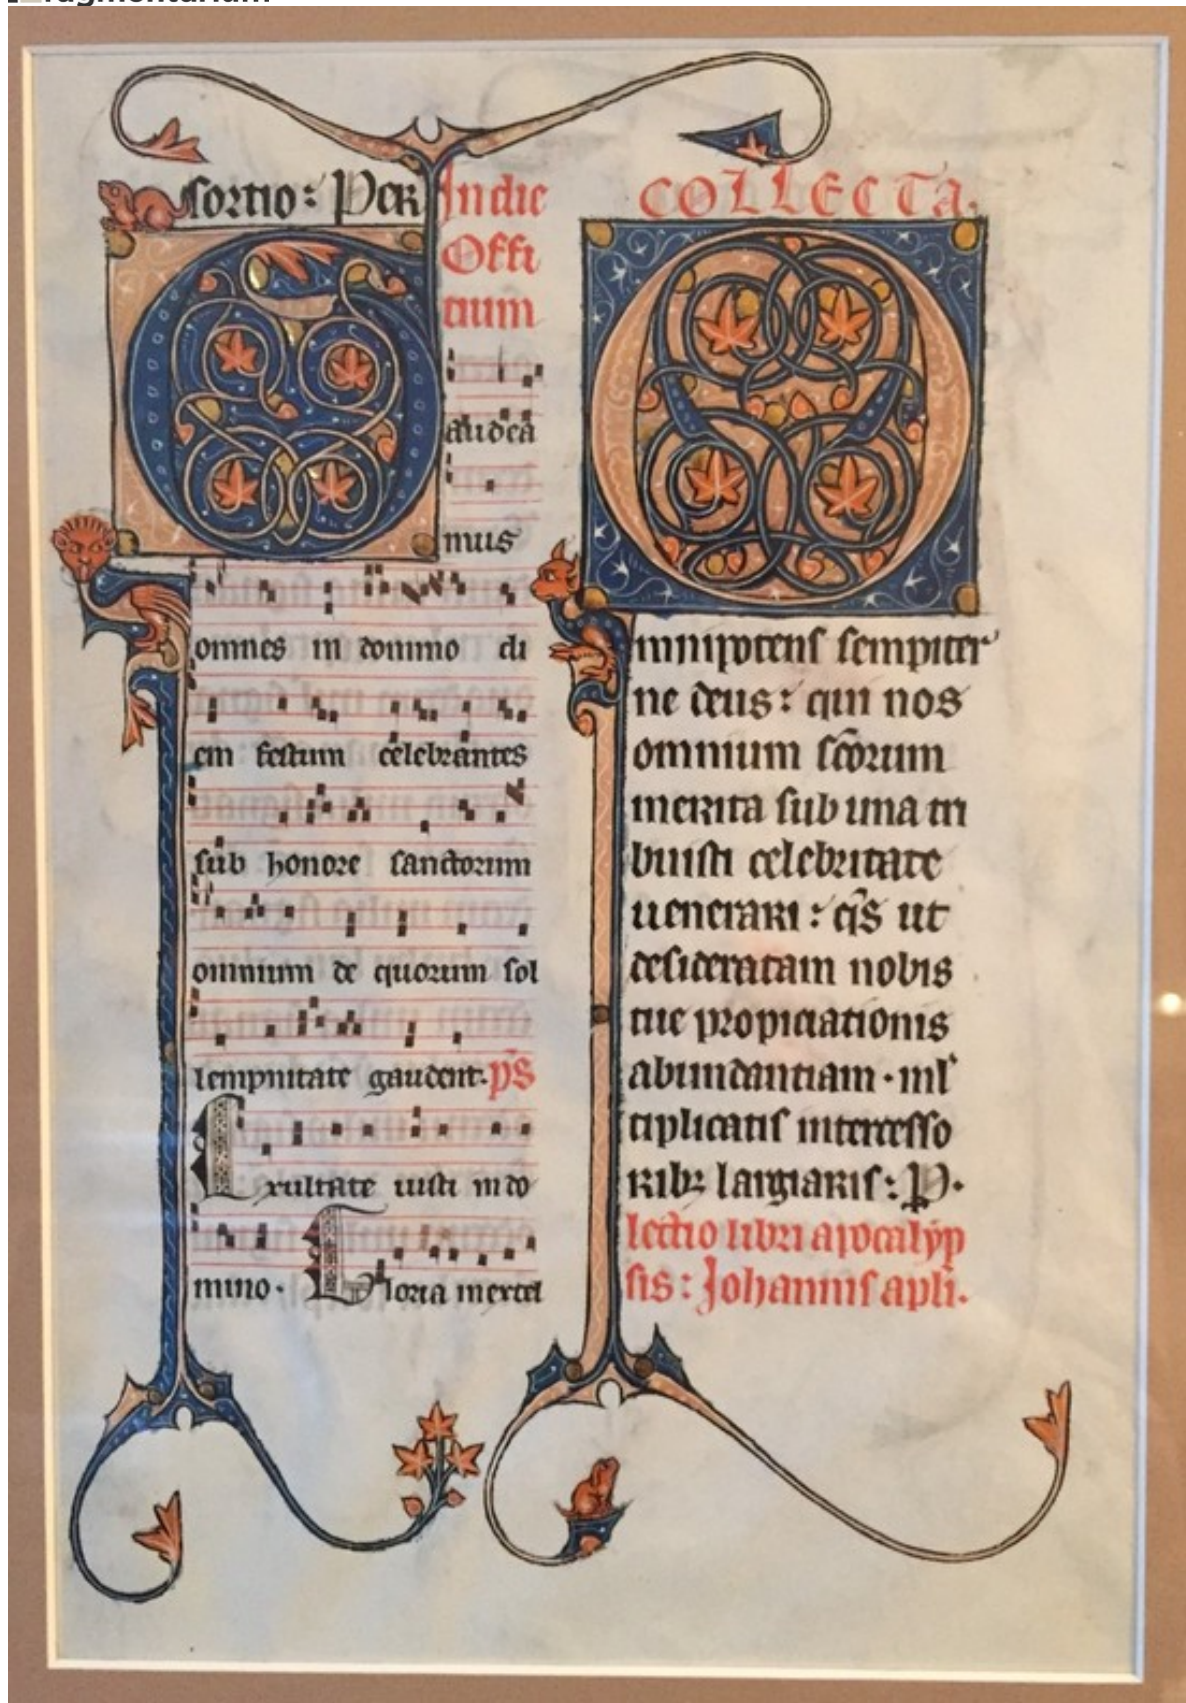 sortio: Per
In die
Offi
tium
Gaudea
mus
omnes in domino di
em festum celebrantes
sub honore sanctorum
omnium de quorum sol
lempnitate gaudent. ps̄
Exultate iusti in do
mino. Gloria
COLLECTA.
Omnipotens sempiter
ne deus: qui nos
omnium scōrum
merita sub una tri
buisti celebritate
uenerari: qs̄ ut
desideratam nobis
tue propiciationis
abundantiam. ml̓
tiplicatis intercesso
ribꝫ largiaris: P.
lectio libri apocalyp
sis: Johannis apl̄i.